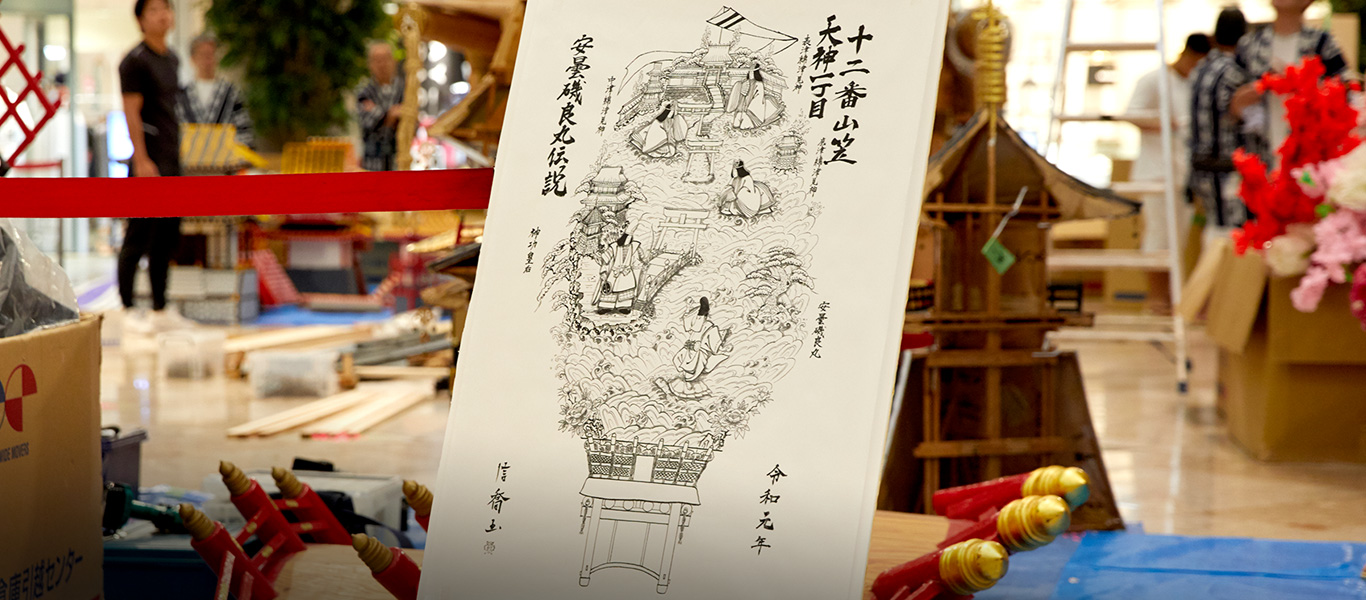 十二番山笠
天神一丁目
表津綿津見師
底津綿津見師
中津綿津見師
安曇磯良丸伝説
神功皇后
安曇磯良丸
令和元年
信喬
WIDE MOVERS
倉庫引越センター